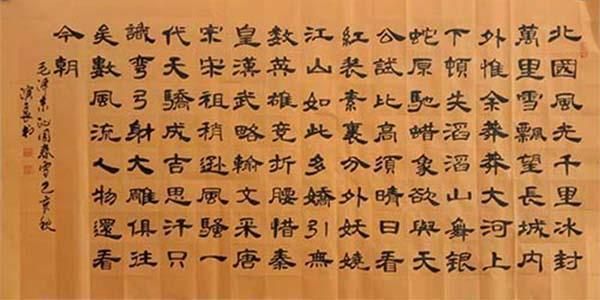 北國風光千里冰封
萬里雪飄望長城内
外惟余莽莽大河上
下頓失滔滔山舞銀
蛇原馳蜡象欲與天
公試比高須晴日看
紅装素裹分外妖嬈
江山如此多嬌引無
数英雄竞折腰惜秦
皇漢武略輸文采唐
宗宋祖稍遜風騷一
代天驕成吉思汗只
識彎弓射大雕俱往
矣數風流人物還看
今朝
毛澤東沁園春雪己亥秋